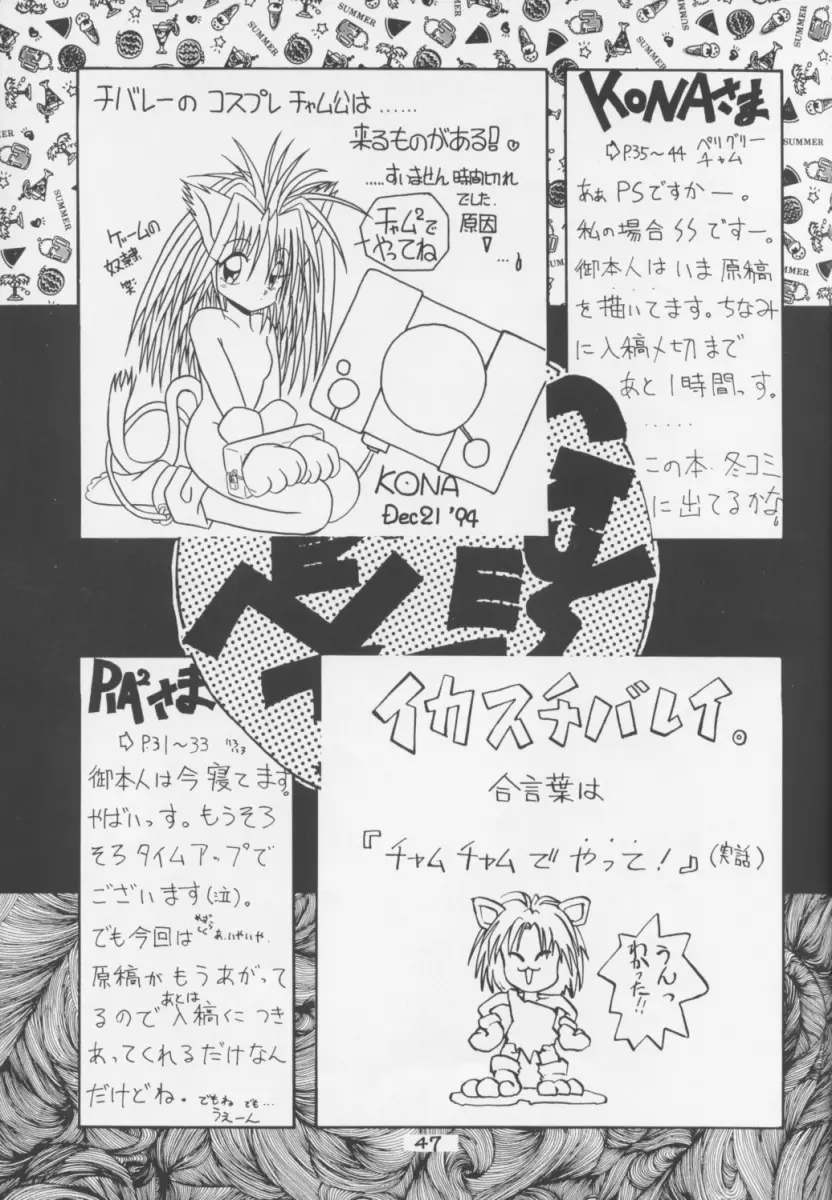 チバレーの コスプレ チャム公は……
来るものがある!!
.....すいません 時間切れ
でした.
原因
チャム²で
やってね
ゲームの
奴隷
笑
KONA
Dec 21 '94
KONAさま
⇨P.35〜44 ペリグリー
チャム
あぁ PSですかー。
私の場合SSですー。
御本人はいま原稿
を描いてます。ちなみ
に入稿〆切まで
あと1時間っす。
.....
この本、冬コミ
に出てるかな
PIA²さま
⇨P.31〜33
御本人は今寝てます。
やばいっす。もうそろ
そろタイムアップで
ございます(泣)。
でも今回は
あ、いやいや、
原稿がもうあがって
あとは
るので入稿につき
あってくれるだけなん
だけどね。でもね でも…
うえーん
イカスチバレイ。
合言葉は
『チャムチャムで やって!』(実話)
うんっ
わかった!!
SUMMER
47